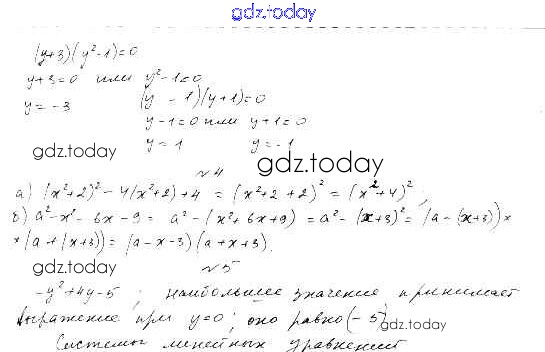 gdz.today
(y+3)(y²-1)=0
y+3=0 или y²-1=0
y=-3 (y-1)(y+1)=0
y-1=0 или y+1=0
y=1 y=-1
gdz.today
gdz.today
№4
а) (x²+2)²-4(x²+2)+4=(x²+2+2)²=(x²+4)²;
б) a²-x²-6x-9=a²-(x²+6x+9)=a²-(x+3)²=(a-(x+3))×
×(a+(x+3))=(a-x-3)(a+x+3).
gdz.today
№5
-y²+4y-5; наибольшее значение принимает
выражение при y=0; оно равно (-5)
gdz.today
Системы линейных уравнений